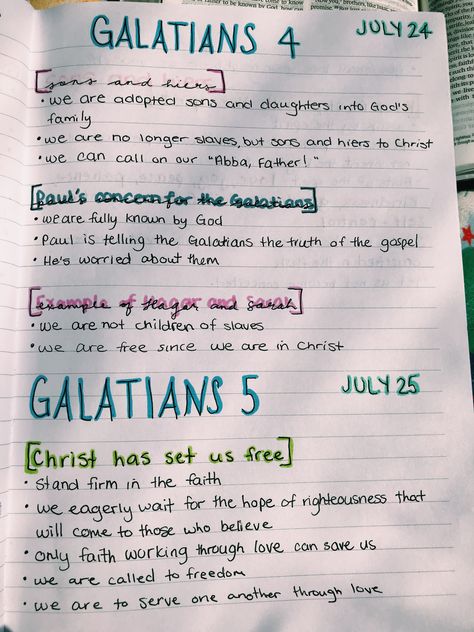 GALATIANS 4
JULY 24
[sons and hiers]
• we are adopted sons and daughters into God's
family
• we are no longer slaves, but sons and hiers to Christ
• we can call on our "Abba, Father!"
[Paul's concern for the Galatians]
• we are fully known by God
• Paul is telling the Galatians the truth of the gospel
• He's worried about them
[Example of Hagar and Sarah]
• we are not children of slaves
• we are free since we are in Christ
GALATIANS 5
JULY 25
[Christ has set us free]
• Stand firm in the faith
• we eagerly wait for the hope of righteousness that
will come to those who believe
• only faith working through love can save us
• we are called to freedom
• we are to serve one another through love